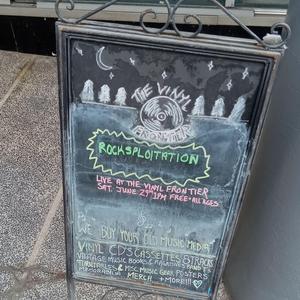 THE VINYL
FRONTIER
ROCKSPLOITATION
LIVE AT THE VINYL FRONTIER
SAT. JUNE 27 1PM FREE-ALL AGES
WE BUY YOUR OLD MUSIC MEDIA!
VINYL CDS CASSETTES 8TRACKS
VINTAGE MUSIC BOOKS & MAGAZINES
TURNTABLES & MISC MUSIC GEAR POSTERS
MEMORABILIA MERCH + MORE!!!